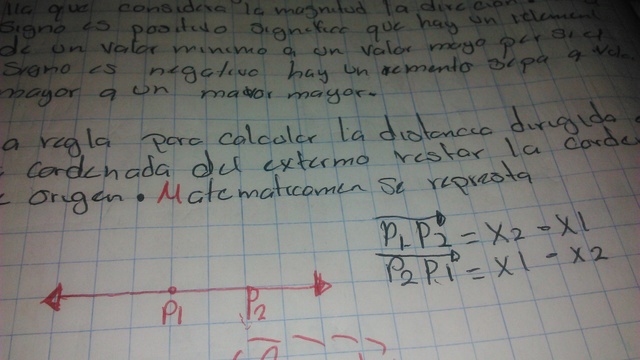 que considera la magnitud la
Signo es positivo significa que hay un
de un valor minimo a un valor mayo
signo es negativo hay un
mayor a un mayor mayor.
a regla para calcular la distancia dirigida
cordenada del extermo restar la
origen. Matematicamen se represta
P1 P2 = X2 - X1
P2 P1 = X1 - X2
P1 P2